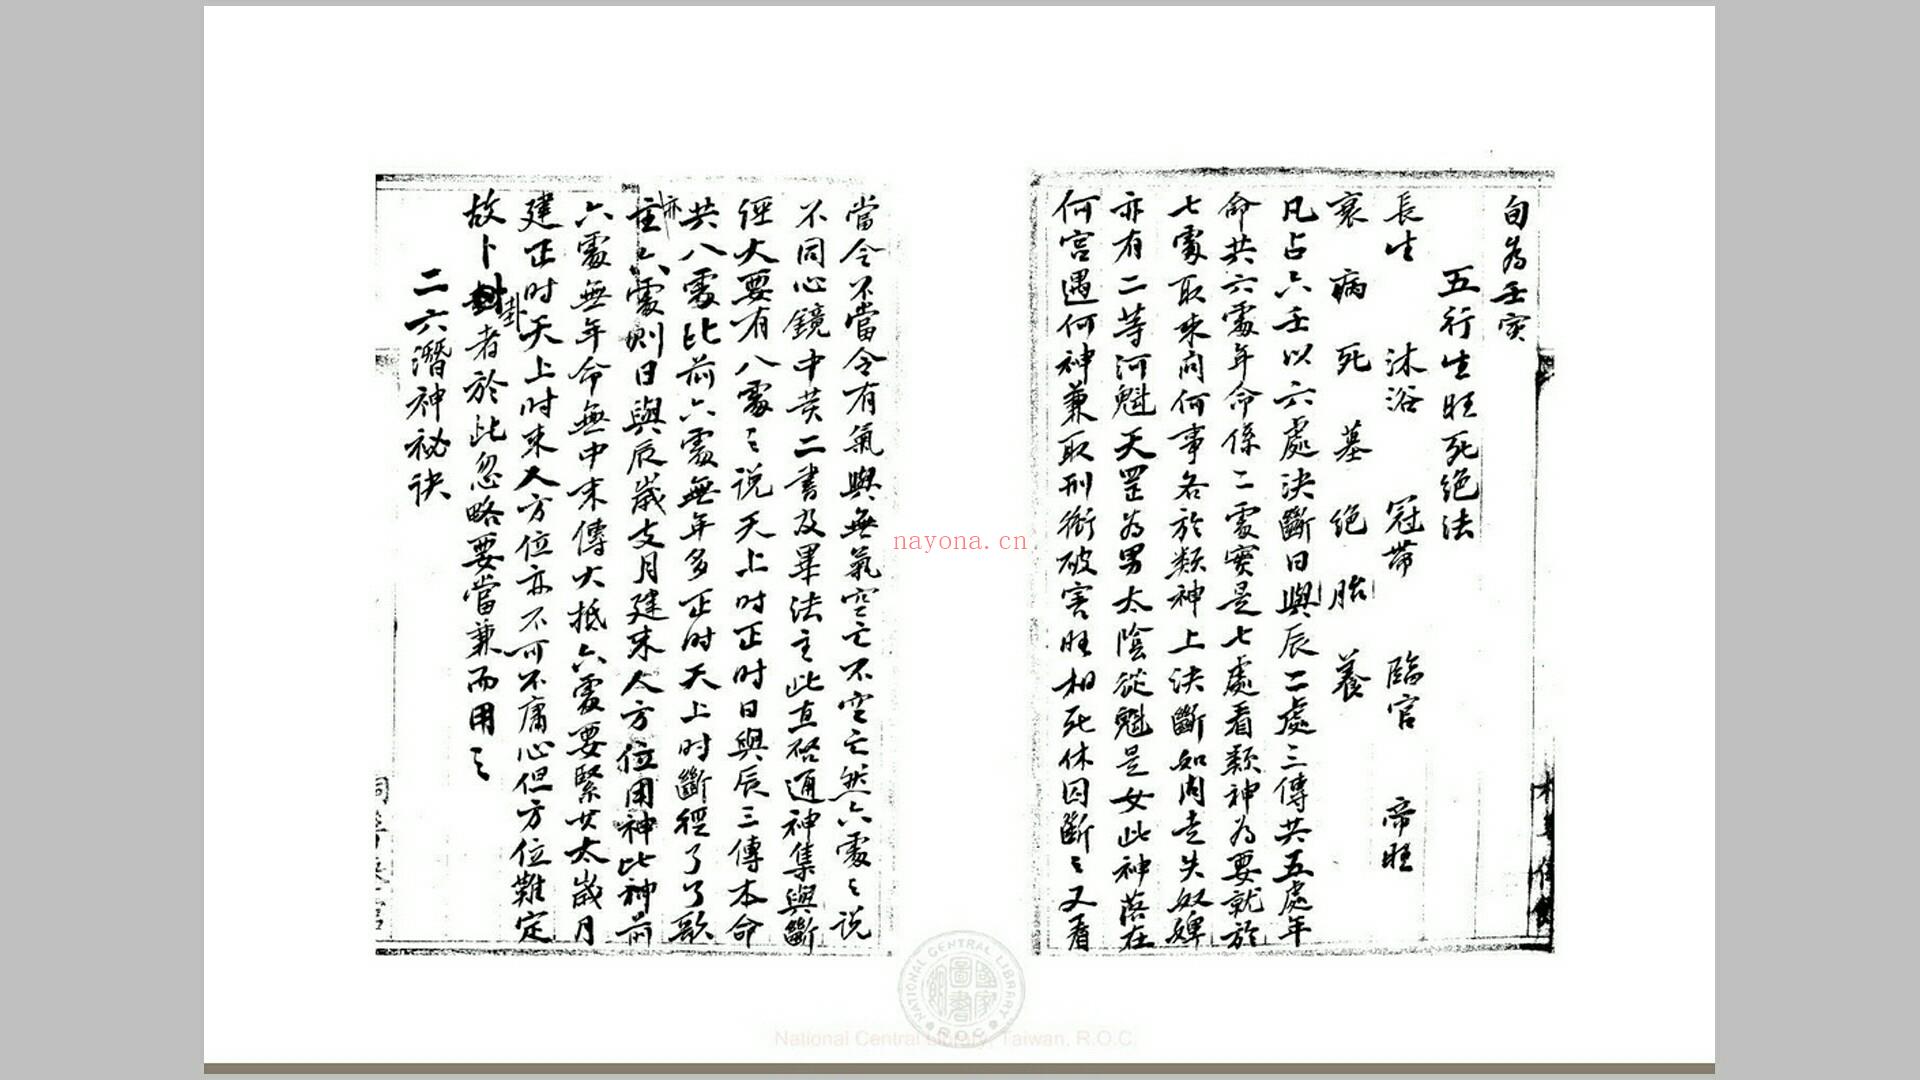 旬為壬寅
五行生旺死絕法
長生 沐浴 冠帶 臨官 帝旺
衰 病 死 墓 絕 胎 養
凡占六壬以六處決斷日與辰二處三傳共五處年
命共六處年命係二處實是七處看類神為要就於
七處取來問何事各於類神上決斷如問走失奴婢
亦有二等河魁天罡為男太陰從魁是女此神落在
何宮遇何神兼取刑衝破害旺相死休囚斷之又看
當令不當令有氣與無氣空亡不空亡然六處之說
不同心鏡中黃二書及畢法主此直啓通神集與斷
徑大要有八處之說天上時正時日與辰三傳本命
共八處比前六處無年多正時天上時斷徑了了歌
亦
主六處則日與辰歲支月建來人方位用神比神前
六處無年命無中末傳大抵六處要緊廿太歲月
建正時天上時來人方位亦不可不庸心但方位難定
故卜卦者於此忽略要當兼而用之
二六潛神祕訣
nayona.cn
NATIONAL CENTRAL LIBRARY
國家圖書館
R.O.C
National Central Library, Taiwan, R.O.C.